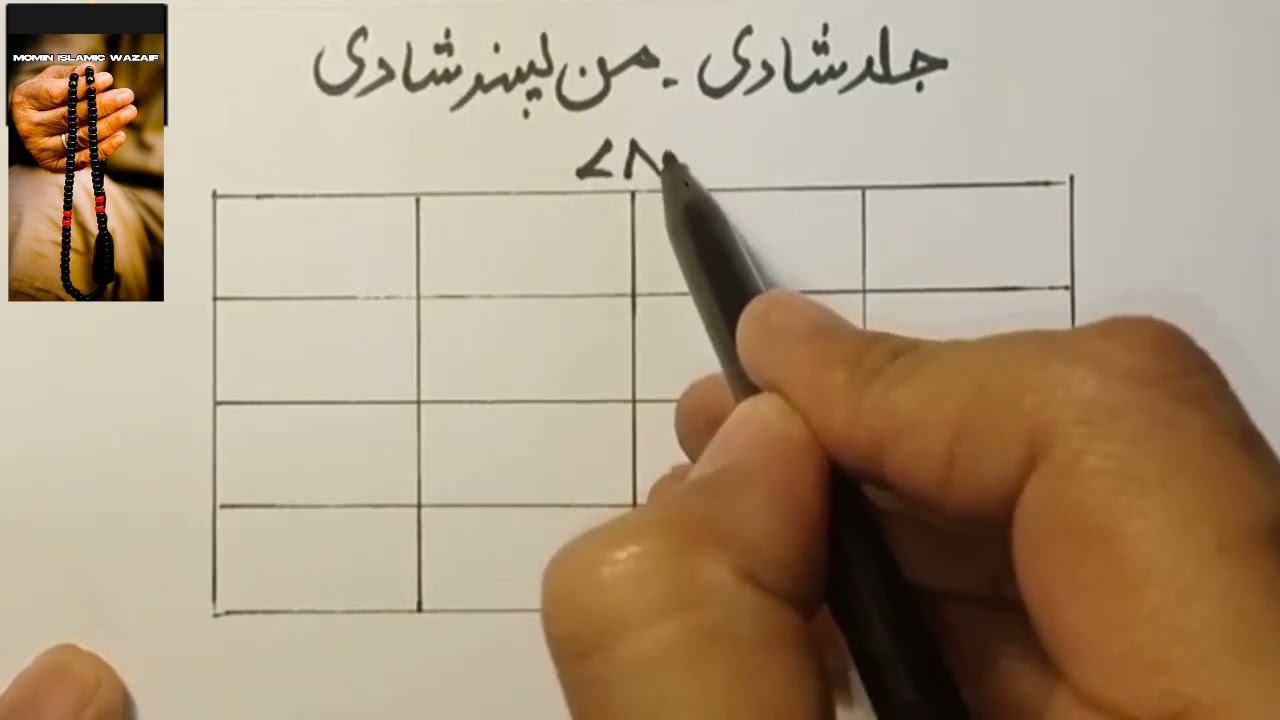 MOMIN ISLAMIC WAZAIF
جلد شادی ۔ من پسند شادی
۷۸